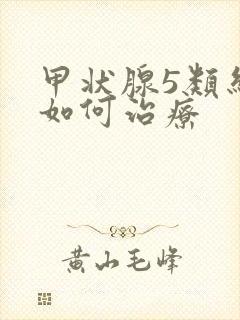 甲状腺5類
如何治療
黄山毛峰